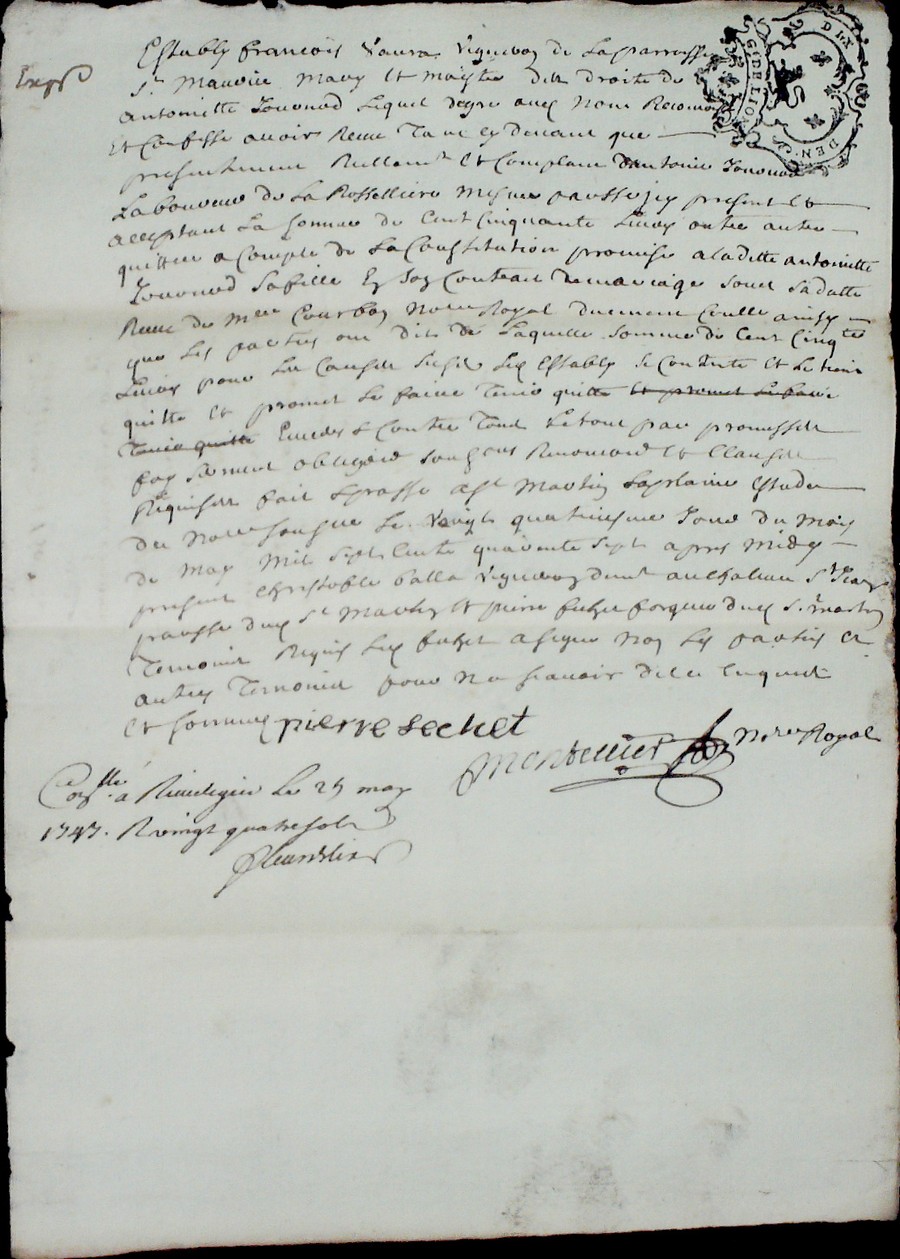 Estably francois Vaura Vigneron de La parroisse
Expp
St Maurice Mary Et maistre des droits de
antoinette Jouvend Lequel degre avec Nous Reconnoit
Et Confesse avoir Receu Tant cy devant que
presentement Reellemt Et Comptant dantoine Jouvend
Laboureur de La Rosselliere mesme parroisse icy present Et
acceptant La somme de Cent Cinquante Livres outre autre
quittance a Compte de La Constitution promise a laditte antoinette
Jouvend sa fille En son Contrat de mariage sous sa datte
Receu de Mtre Courbon Notre Royal duement Conllé ainsy
que Les parties ont dit de Laquelle somme de Cent Cinqte
Livres pour Les Causes susd Led Estably se Contente Et Le tient
quitte Et promet Le faire Tenir quitte Et promet Le faire
Tenir quitte Envers & Contre Tous Le tout par promesses
foy serment obligations Renonciaons Et Clauses
Requises fait & passé a St Martin Laplaine Estude
du Notre sousgné Le Vingt quatriesme Jour du Mois
de May Mil Sept Cents quarante Sept apres Midy
present Christofle balla Vigneron demt au Chateau St
parroisse dud St Martin Et pierre forgeur dud St martin
Temoins Requis Led a signé Non Les parties Et
autre Temoins pour ne scavoir de ce Enquis
Et sommes pierre sechet
Montellier Notre Royal
Conllé a Rivedegier Le 25 may
1747. R vingt quatre sols
GNDELION
DIX DEN.